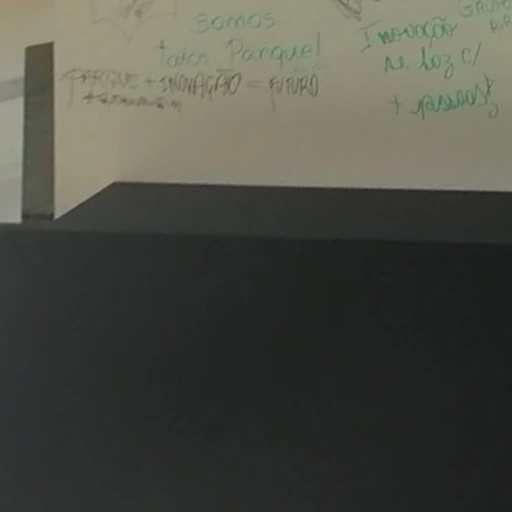 somos
todos Parque!
PARQUE + INOVAÇÃO = FUTURO
Inovação
se faz c/
+ pessoas
GRUPO